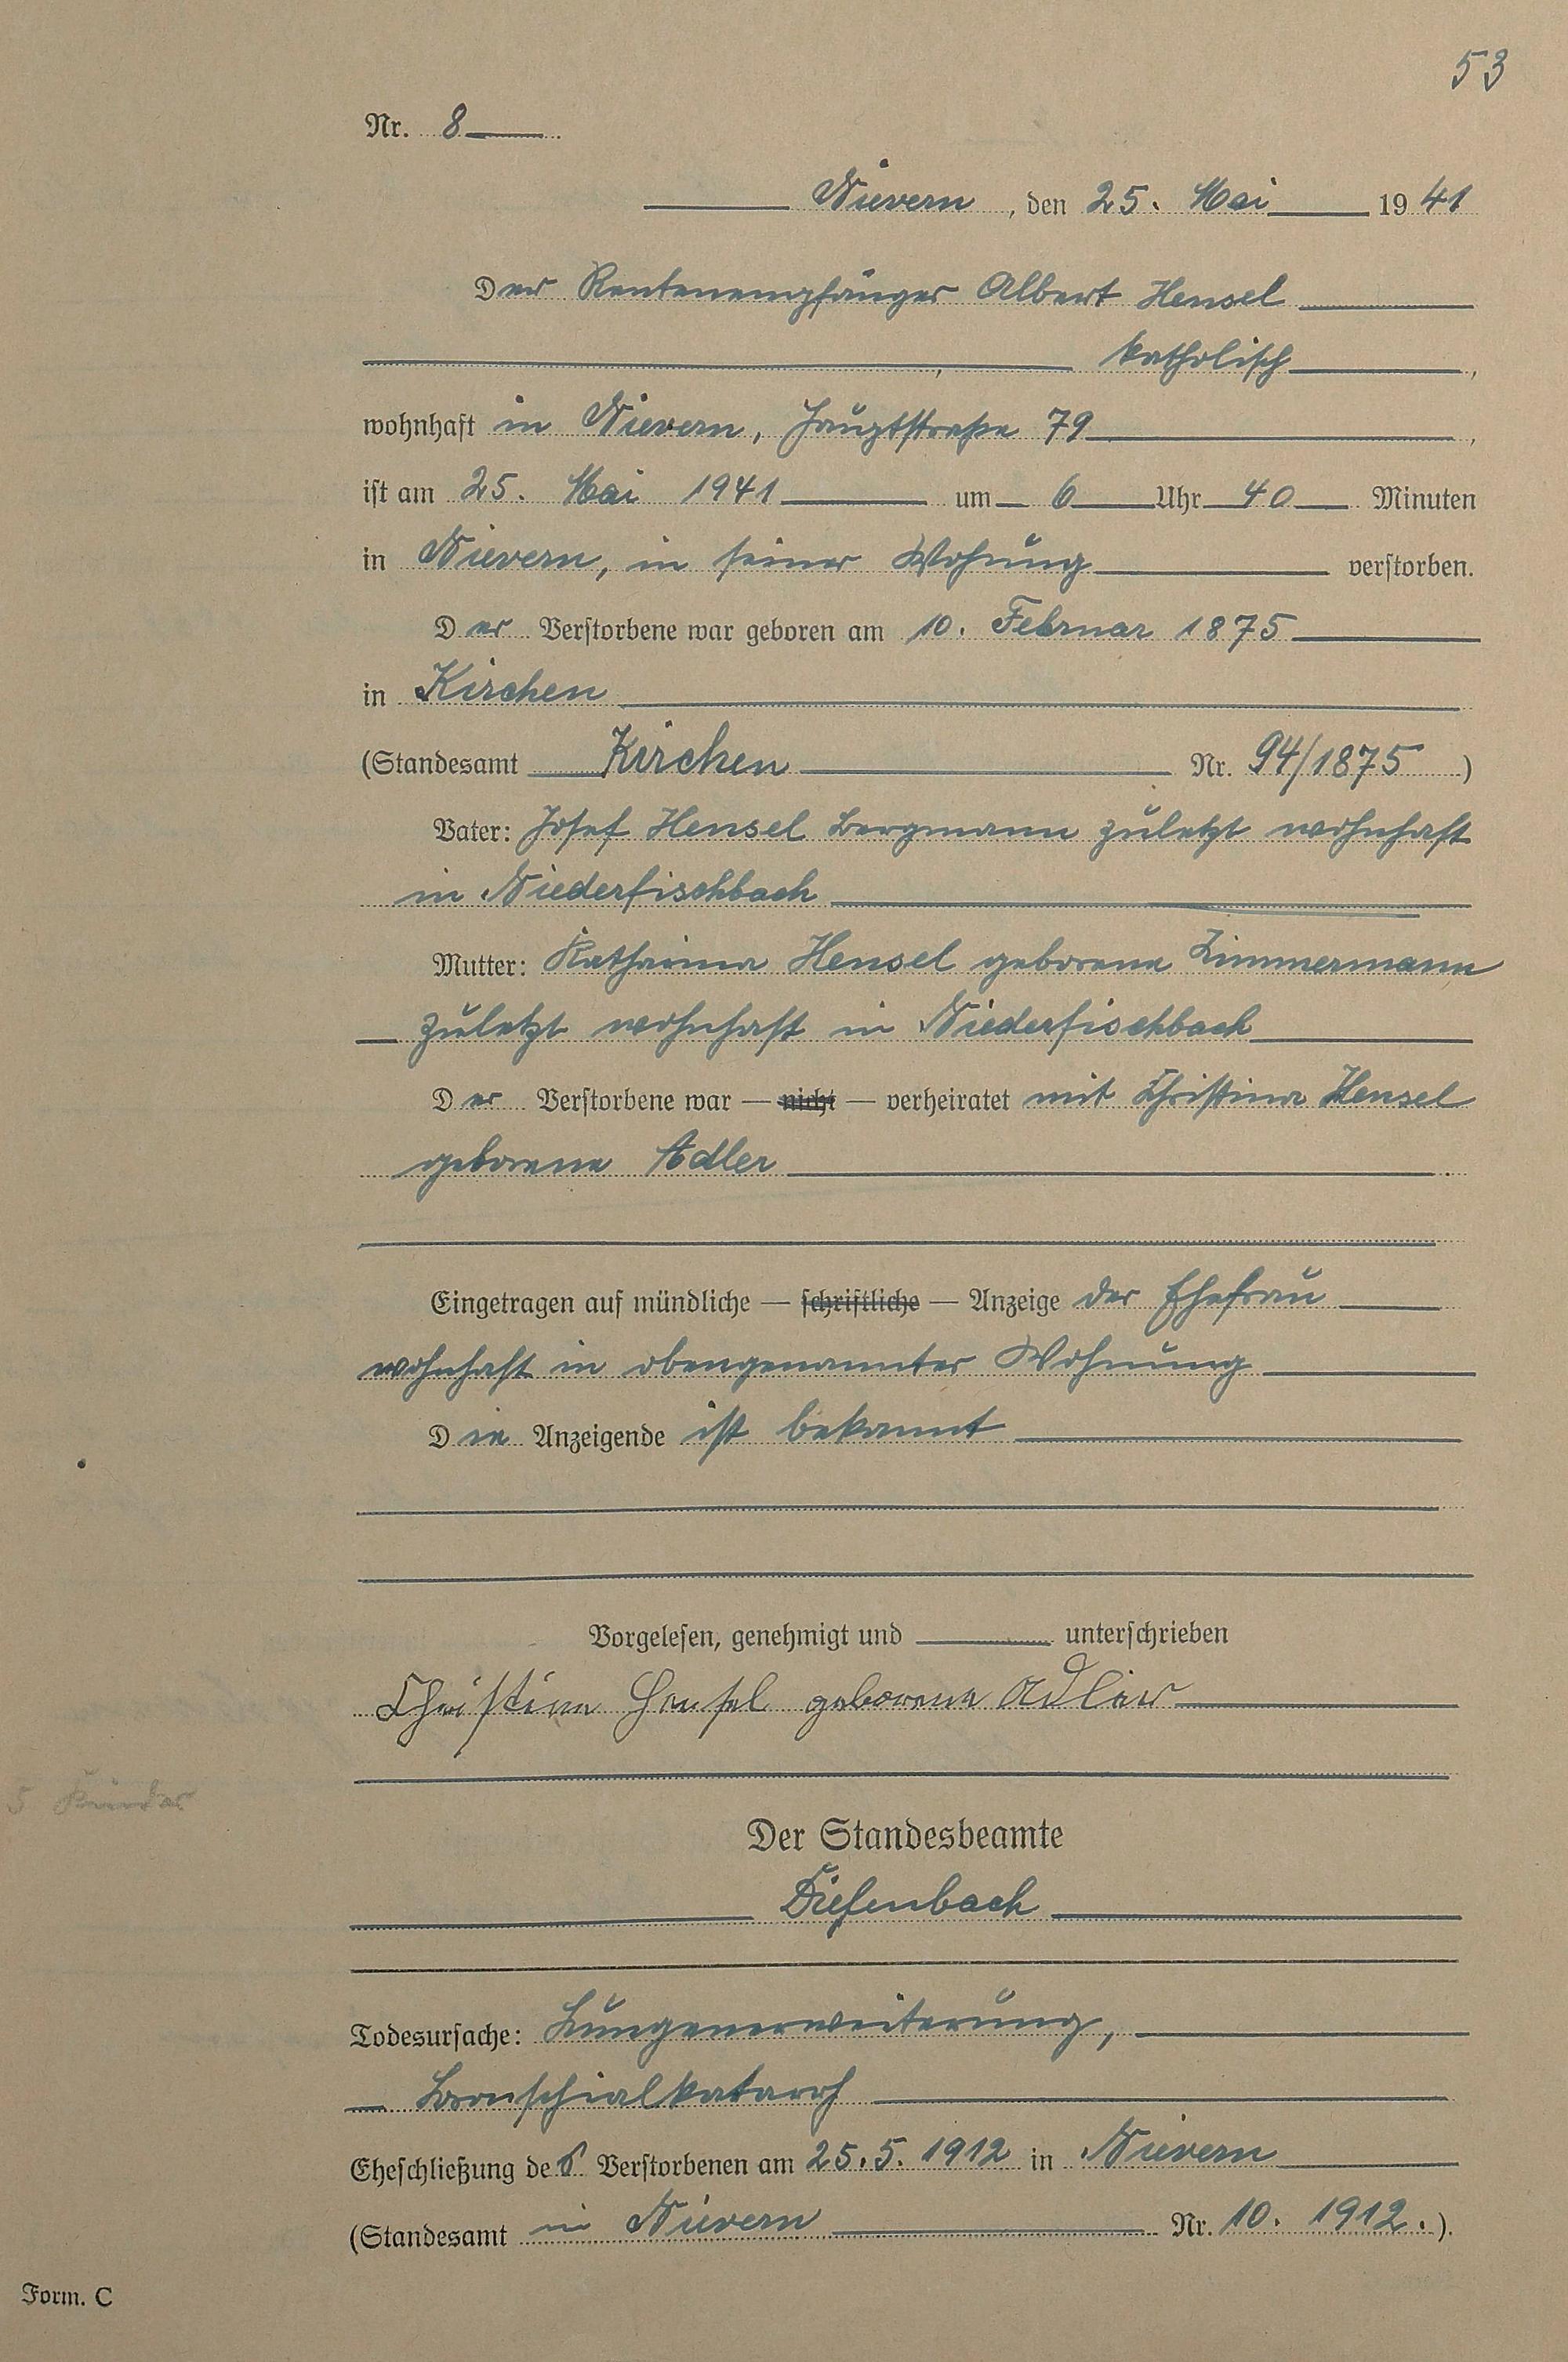 53
Nr. 8
Nievern, den 25. Mai 1941
Der Rentenempfänger Albert Hensel
, katholisch,
wohnhaft in Nievern, Hauptstraße 79,
ist am 25. Mai 1941 um 6 Uhr 40 Minuten
in Nievern, in seiner Wohung verstorben.
Der Verstorbene war geboren am 10. Februar 1875
in Kirchen
(Standesamt Kirchen Nr. 94/1875)
Vater: Josef Hensel Bergmann zuletzt wohnhaft
in Niederfischbach
Mutter: Katharina Hensel geborene Zimmermann
zuletzt wohnhaft in Niederfischbach
Der Verstorbene war — nicht — verheiratet mit Christina Hensel
geborene Adler
Eingetragen auf mündliche — schriftliche — Anzeige der Ehefrau
wohnhaft in obengenannter Wohnung
Die Anzeigende ist bekannt
Vorgelesen, genehmigt und unterschrieben
Christina Hensel geborene Adler
5 Kinder
Der Standesbeamte
Diefenbach
Todesursache: Lungenerweiterung,
Bronschialkatarrh
Eheschließung des Verstorbenen am 25.5.1912 in Nievern
(Standesamt in Nievern Nr. 10. 1912.).
Form. C